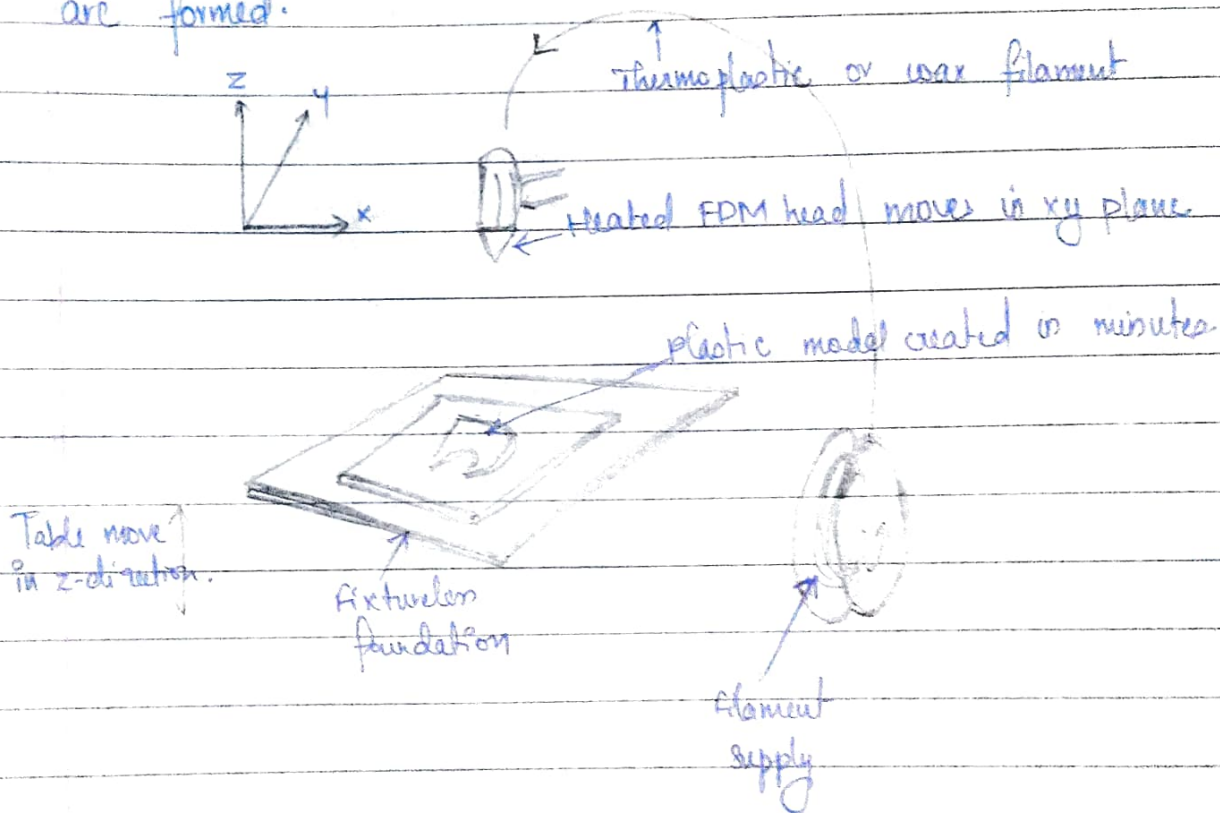 are formed.
Z
y
Thermoplastic or wax filament
x
Heated FDM head moves in xy plane
plastic model created in minutes
Table move
in z-direction.
fixtureless
foundation
filament
supply